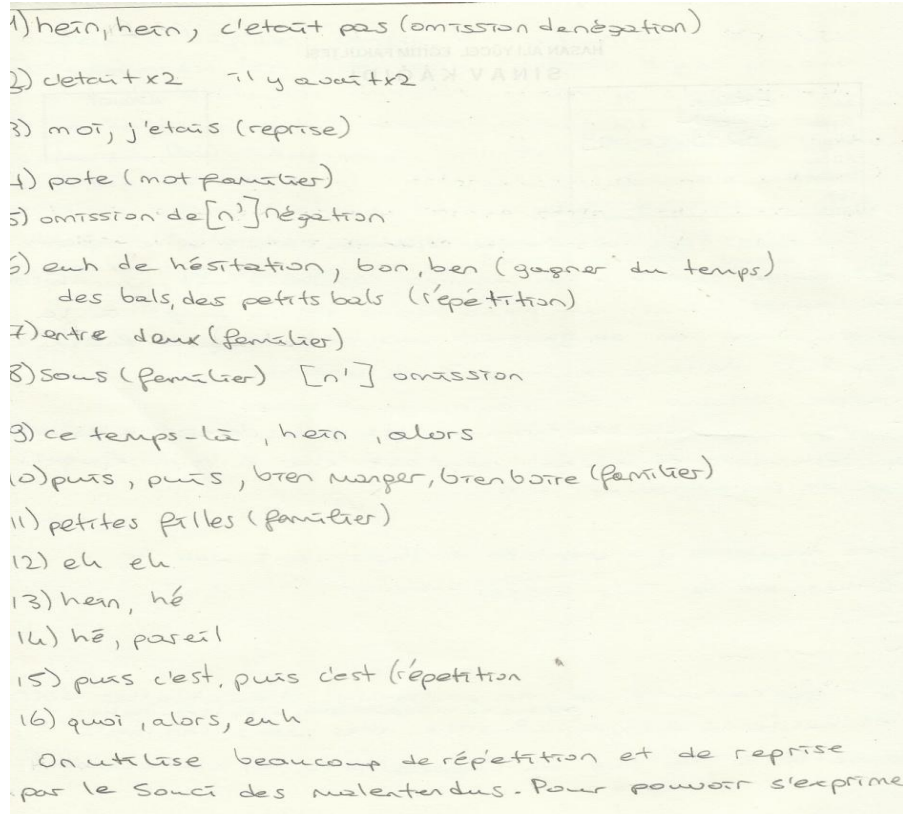 1) hein, hein, c'etait pas (omission de négation)
2) c'etait x2 il y avait x2
3) moi, j'etais (reprise)
4) pote (mot familier)
5) omission de [n'] négation
6) euh de hésitation, bon, ben (gagner du temps)
des bals, des petits bals (répétition)
7) entre deux (familier)
8) sous (familier) [n'] omission
9) ce temps-là, hein, alors
10) puis, puis, bien manger, bien boire (familier)
11) petites filles (familier)
12) eh eh
13) hein, hé
14) hé, pareil
15) puis c'est, puis c'est (répetition
16) quoi, alors, euh
On utilise beaucoup de répétition et de reprise
par le souci des malentendus. Pour pouvoir s'exprime